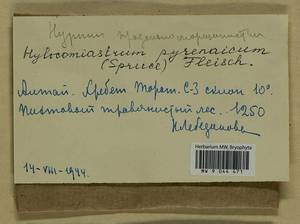 Hypnum
Hylocomiastrum pyrenaicum
(Spruce) Fleisch.
Алтай. Хребет Торот. С-З склон 10°.
Пихтовый травянистый лес. 1250
Н Лебединова
14-VIII-1944.
Herbarium MW, Bryophyta
MW 9 044 471